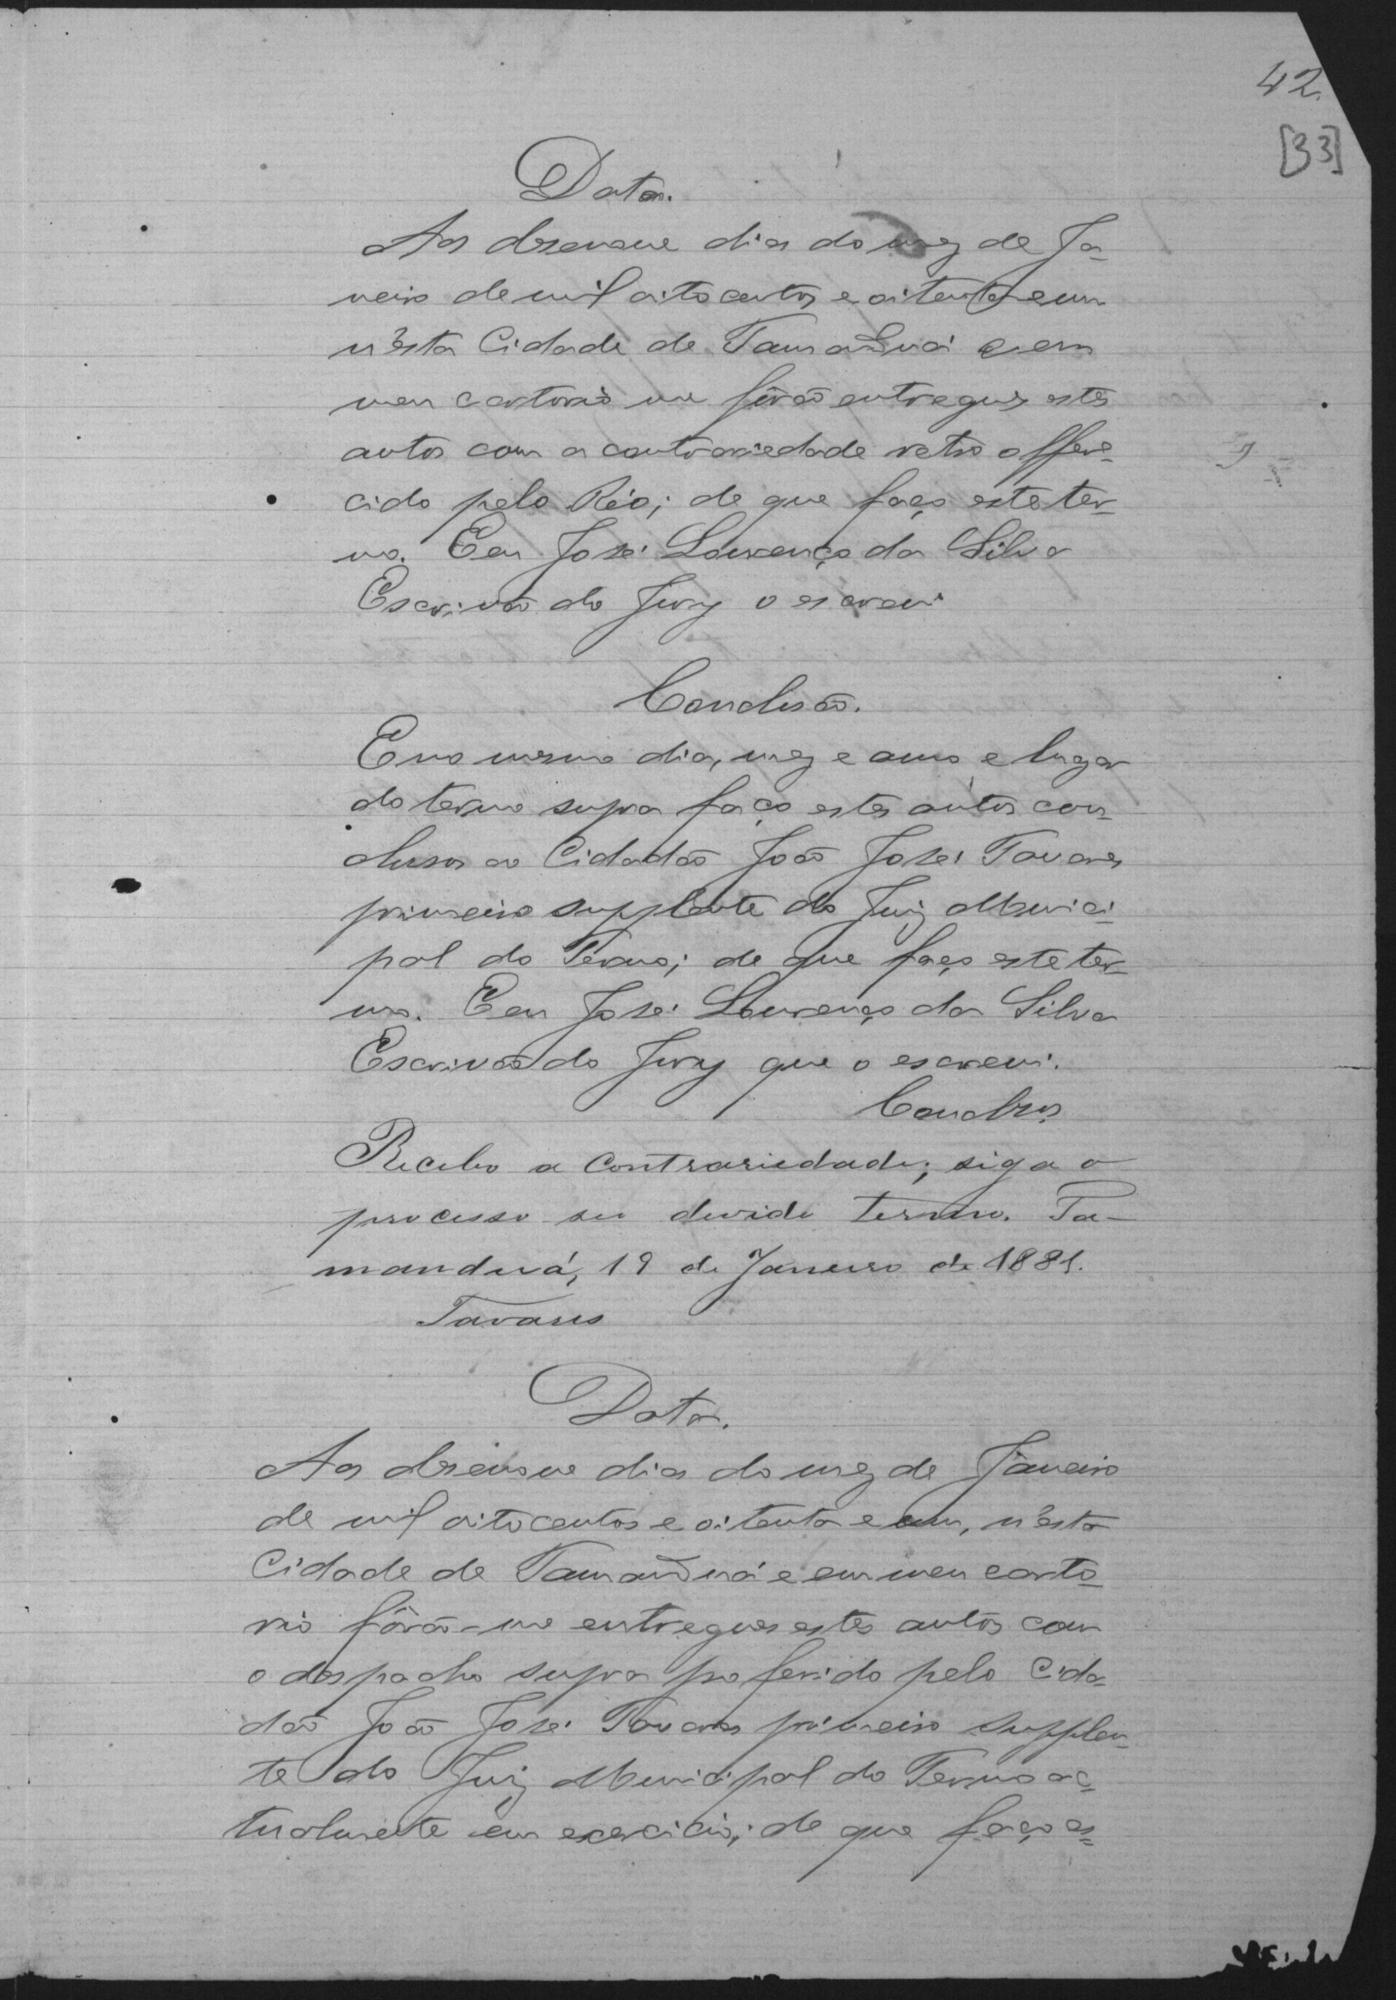 42.
[33]
Data.
Aos desenove dias do mez de Ja-
neiro de mil oitocentos e oitenta e um
n'esta Cidade de Tamanduá e em
meu cartorio me forão entregues estes
autos com a contrariedade retro offere-
cido pelo Réo; de que faço este ter-
mo. Eu José Lourenço da Silva
Escrivão do Jury o escrevi
Conclusão.
E no mesmo dia, mez e anno e lugar
do termo supra faço estes autos con-
clusos ao Cidadão João José Tavares
primeiro supplente do Juiz Munici-
pal do Termo; de que faço este ter-
mo. Eu José Lourenço da Silva
Escrivão do Jury que o escrevi.
Conclusos
Recebo a contrariedade; siga o
processo seu devido termo. Ta-
manduá, 19 de Janeiro de 1881.
Tavares
Data.
Aos desenove dias do mez de Janeiro
de mil oitocentos e oitenta e um, n'esta
Cidade de Tamanduá e em meu carto-
rio fôrão-me entregues estes autos com
o despacho supra proferido pelo Cida-
dão João José Tavares primeiro supplen-
te do Juiz Municipal do Termo ac-
tualmente em exercicio; de que faço es-